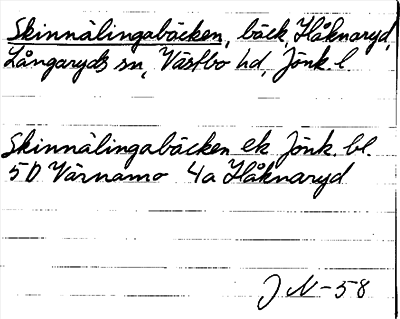 Skinnälingabäcken, bäck, Håknaryd,
Långaryds sn, Västbo hd, Jönk. l
Skinnälingabäcken ek Jönk. bl.
5D Värnamo 4a Håknaryd
J N-58